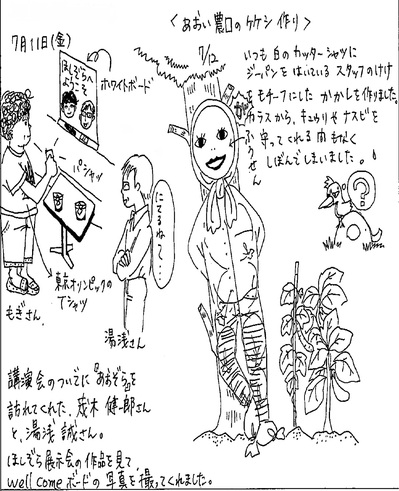 〈あおい農園のケケシ作り〉
7月11日(金)
ほしぞらへ
ようこそ
ホワイトボード
7/12
いつも白のカッターシャツに
ジーパンをはいているスタッフのけけ
をモチーフにしたかかしを作りました。
カラスから、キュウリやナスビを
守ってくれる間もなく
しぼんでしまいました。
ふうせん
パシャッ
にてるねぇ…
?
東京オリンピックの
Tシャツ
もぎさん
湯浅さん
講演会のついでに『あおぞら』を
訪れてくれた、茂木健一郎さん
と、湯浅誠さん。
ほしぞら展示会の作品を見て、
well comeボードの写真を撮ってくれました。